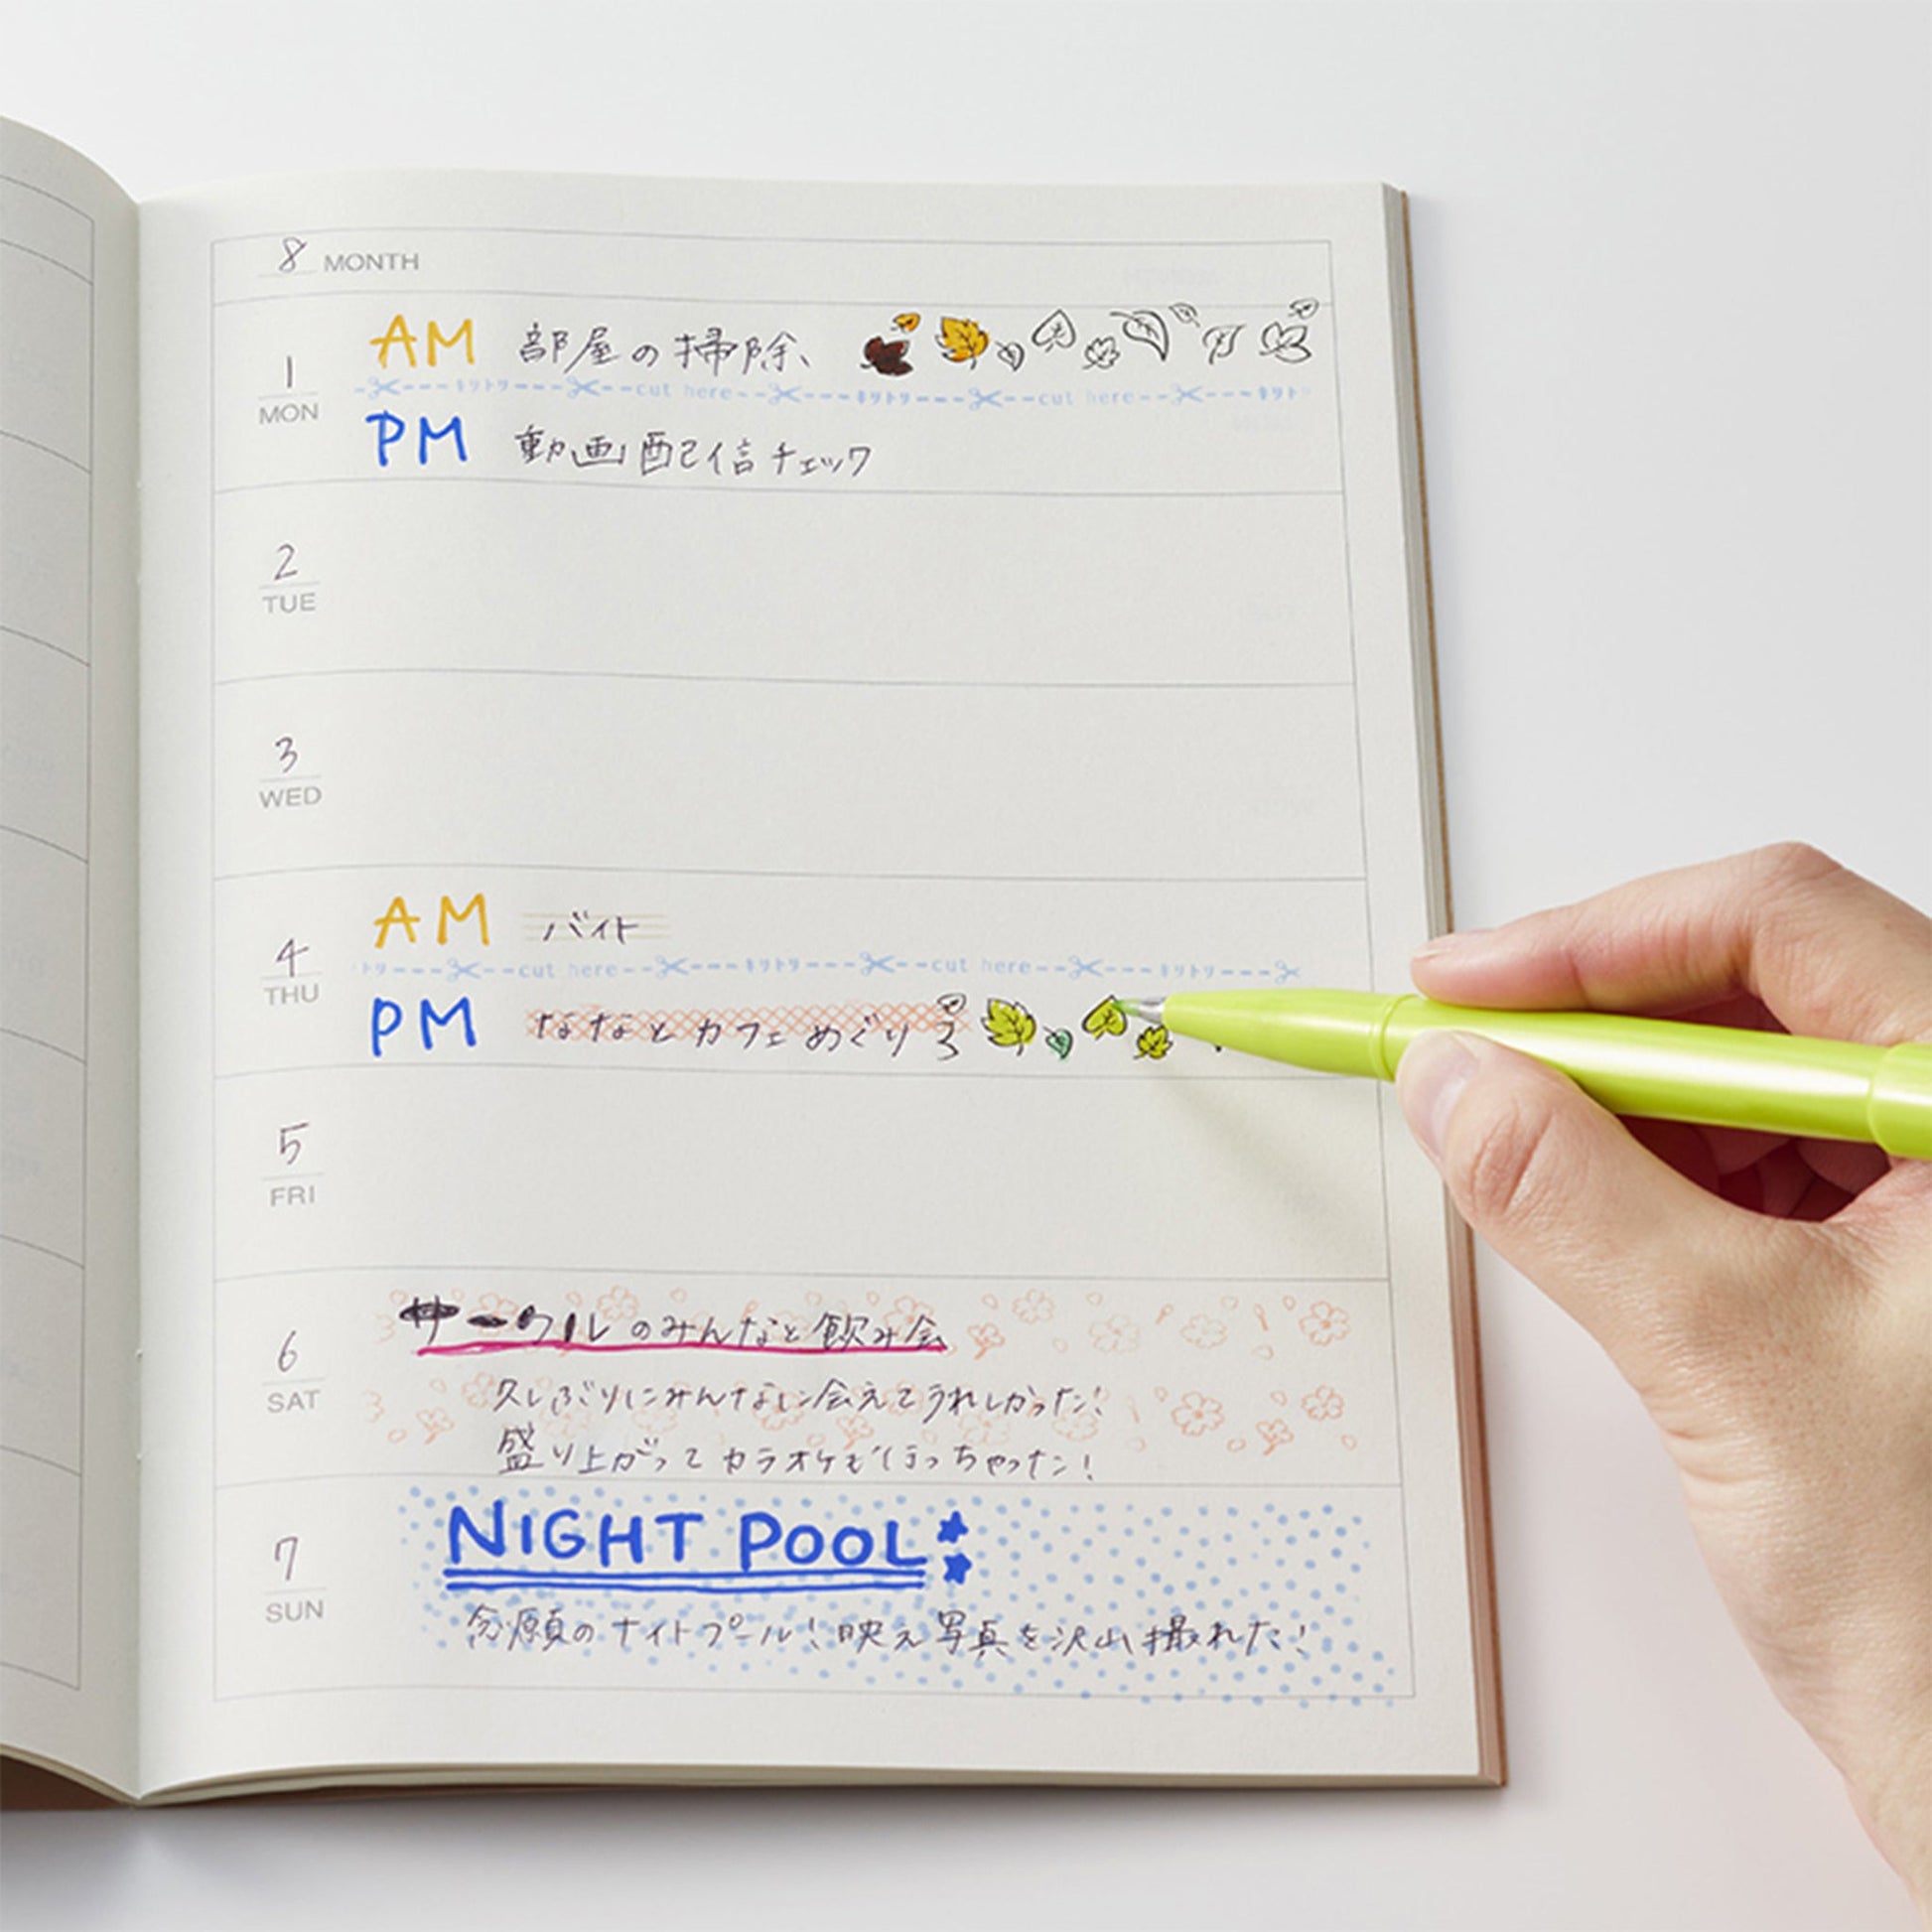 8 MONTH
AM 部屋の掃除、
キリトリ cut here キリトリ cut here キリトリ
1
MON
PM 動画配信チェック
2
TUE
3
WED
AM バイト
トリ cut here キリトリ cut here キリトリ
4
THU
PM ななとカフェめぐり
5
FRI
サークルのみんなと飲み会
6
SAT
久しぶりにみんなに会えてうれしかった!
盛り上がってカラオケも行っちゃった!
NIGHT POOL
7
SUN
念願のナイトプール!映え写真を沢山撮れた!